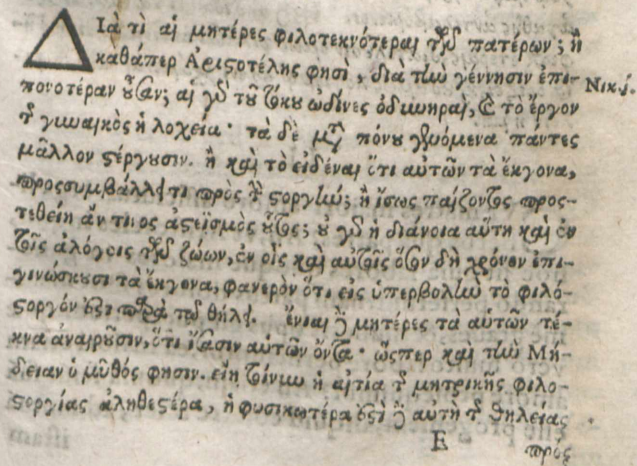 Διὰ τὶ αἱ μητέρες φιλοτεκνότεραι τῶν πατέρων; ἢ
καθάπερ Ἀριστοτέλης φησὶ, διὰ τὴν γέννησιν ἐπι-
πονοτέραν οὖσαν; αἱ γὸ τοῦ τόκου ὠδῖνες ὀδυνηραὶ, καὶ τὸ ἔργον
τῆς γυναικὸς ἡ λοχεία· τὰ δὲ μετὰ πόνου γενόμενα πάντες
μᾶλλον στέργουσιν. ἢ καὶ τὸ εἰδέναι ὅτι αὐτῶν τὰ ἔκγονα,
προσσυμβάλλει τι πρὸς τὴν στοργὴν; ἢ ἴσως παίζοντος προς-
τεθείη ἄν τινος ἀστεϊσμὸς οὗτος; οὐ γὸ ἡ διάνοια αὕτη καὶ ἐν
τοῖς ἀλόγοις τῶν ζώων, ἐν οἷς καὶ αὐτοῖς ὅσον δὴ χρόνον ἐπι-
γινώσκουσι τὰ ἔκγονα, φανερὸν ὅτι εἰς ὑπερβολὴν τὸ φιλό-
στοργόν ἐστι παρὰ τῷ θήλει. ἔνιαι δὲ μητέρες τὰ αὑτῶν τέ-
κνα ἀναιροῦσιν, ὅτι ἴσασιν αὐτῶν ὄντα· ὥσπερ καὶ τὴν Μή-
δειαν ὁ μῦθός φησιν. εἴη τοίνυν ἡ αἰτία τῆς μητρικῆς φιλο-
στοργίας ἀληθεστέρα, ἢ φυσικωτέρα ἐστὶ δὲ αὐτὴ τῆς θηλείας
Νικ.ι.
E
πρὸς